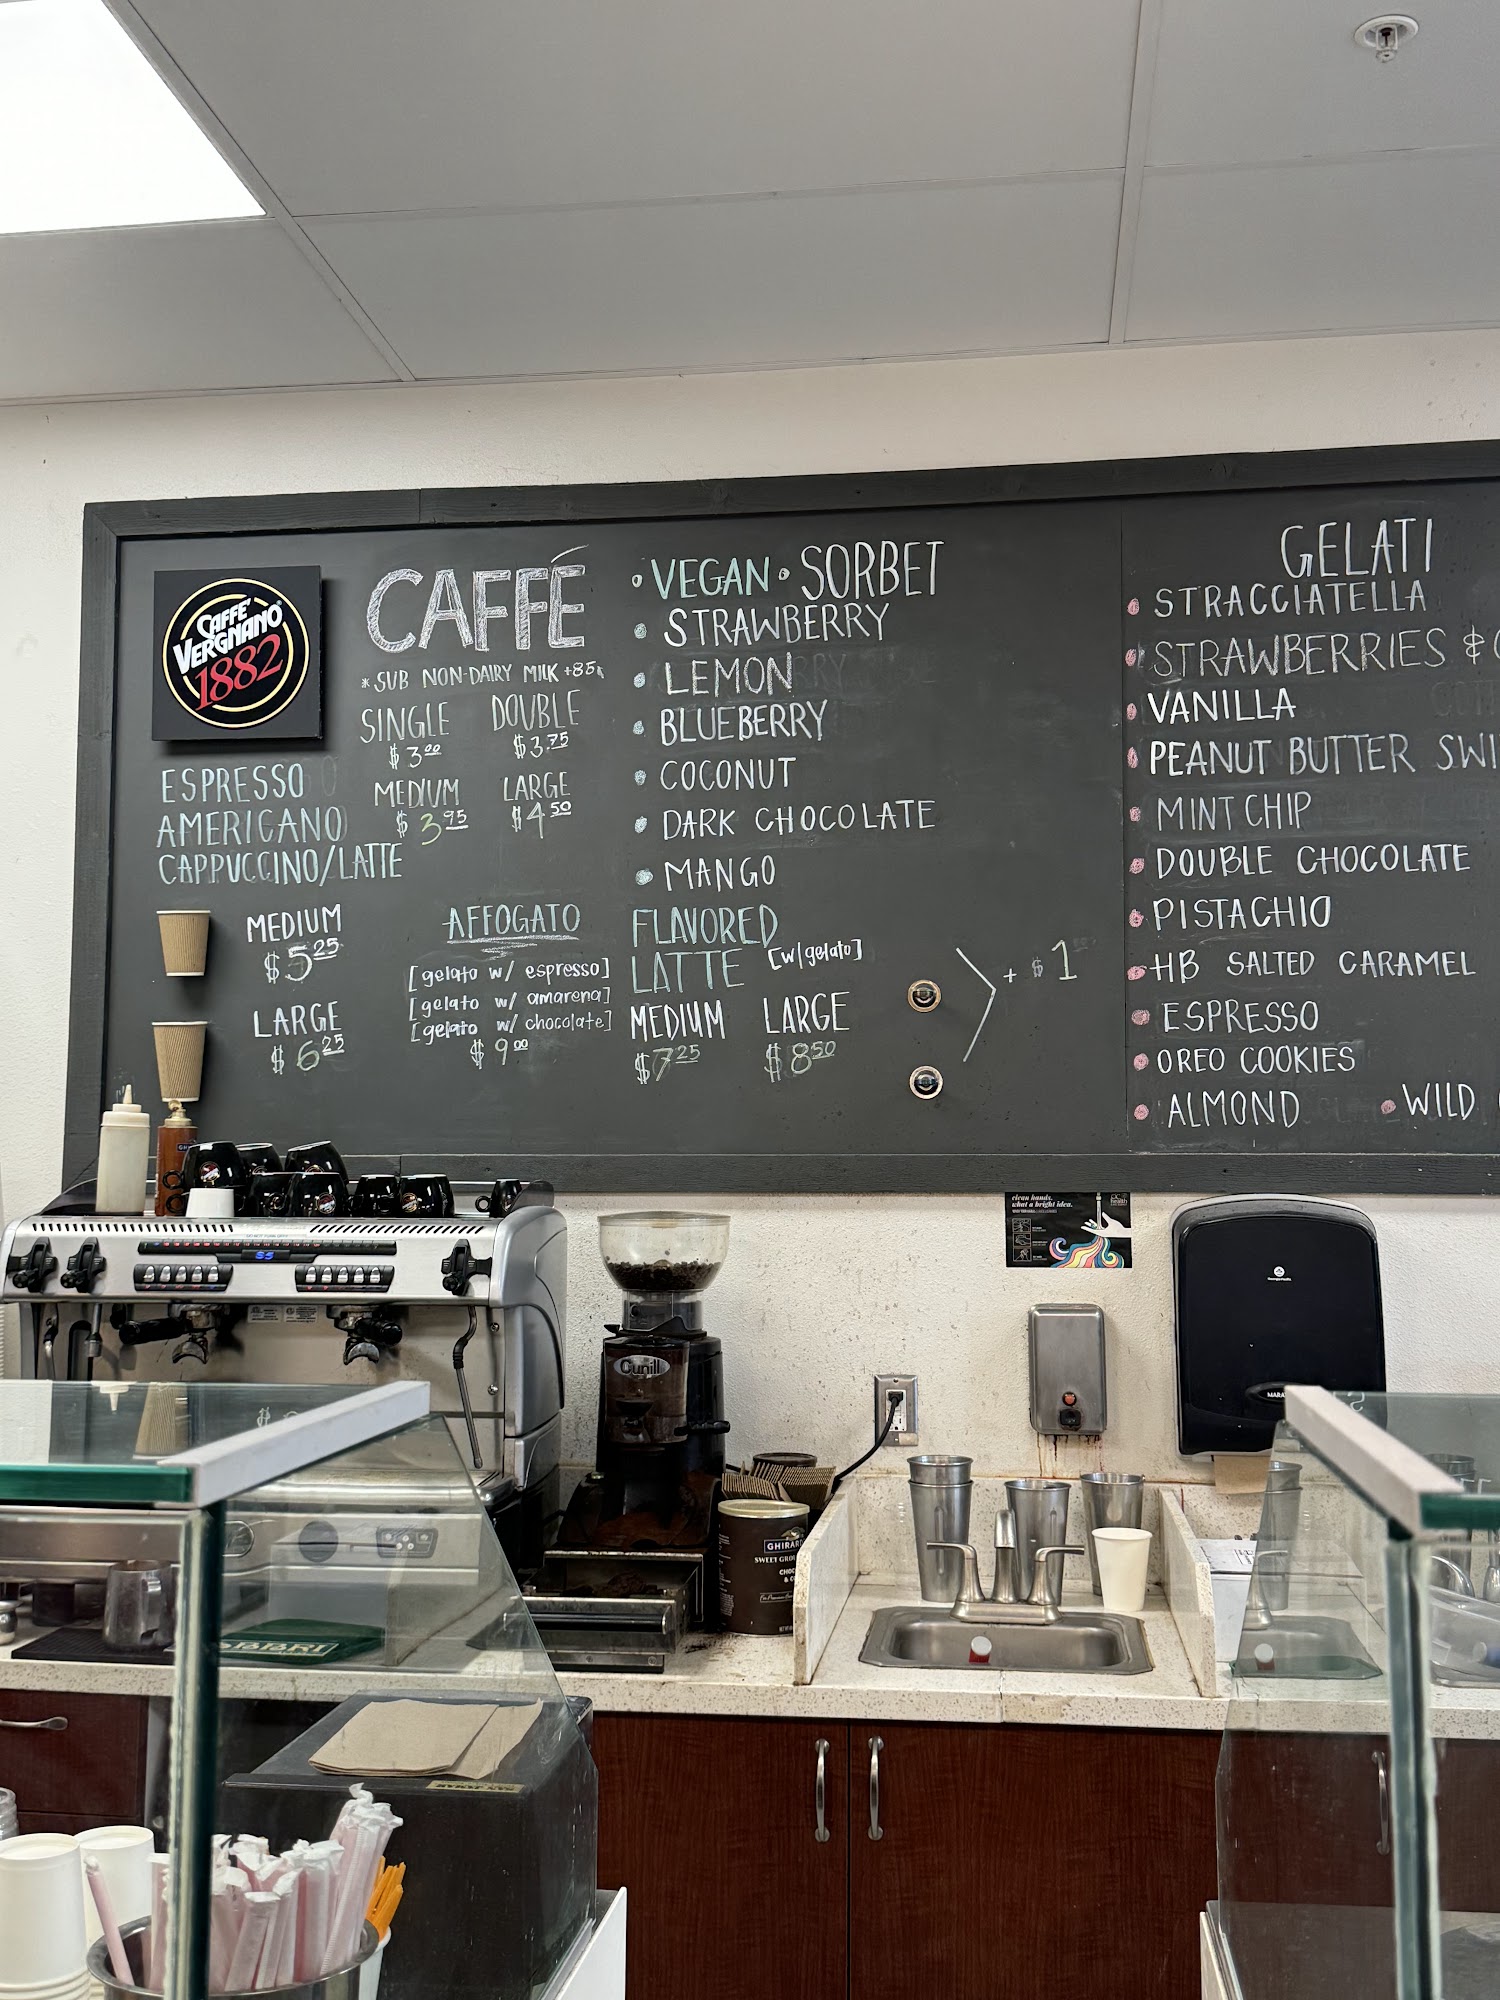 CAFFÈ
VERGNANO
1882
CAFFÉ
*SUB NON-DAIRY MILK +85¢
SINGLE DOUBLE
$3.00 $3.75
MEDIUM LARGE
$3.95 $4.50
ESPRESSO
AMERICANO
CAPPUCCINO/LATTE
MEDIUM
$5.25
LARGE
$6.25
AFFOGATO
[gelato w/ espresso]
[gelato w/ amarena]
[gelato w/ chocolate]
$9.00
• VEGAN • SORBET
• STRAWBERRY
• LEMON
• BLUEBERRY
• COCONUT
• DARK CHOCOLATE
• MANGO
FLAVORED
LATTE [w/gelato]
MEDIUM LARGE
$7.25 $8.50
+ $1
GELATI
• STRACCIATELLA
• STRAWBERRIES &
• VANILLA
• PEANUT BUTTER SWI
• MINT CHIP
• DOUBLE CHOCOLATE
• PISTACHIO
• HB SALTED CARAMEL
• ESPRESSO
• OREO COOKIES
• ALMOND • WILD
clean hands.
what a bright idea.
health
S5
Cunill
GHIRAR
SWEET GROU
CHOC
& CO